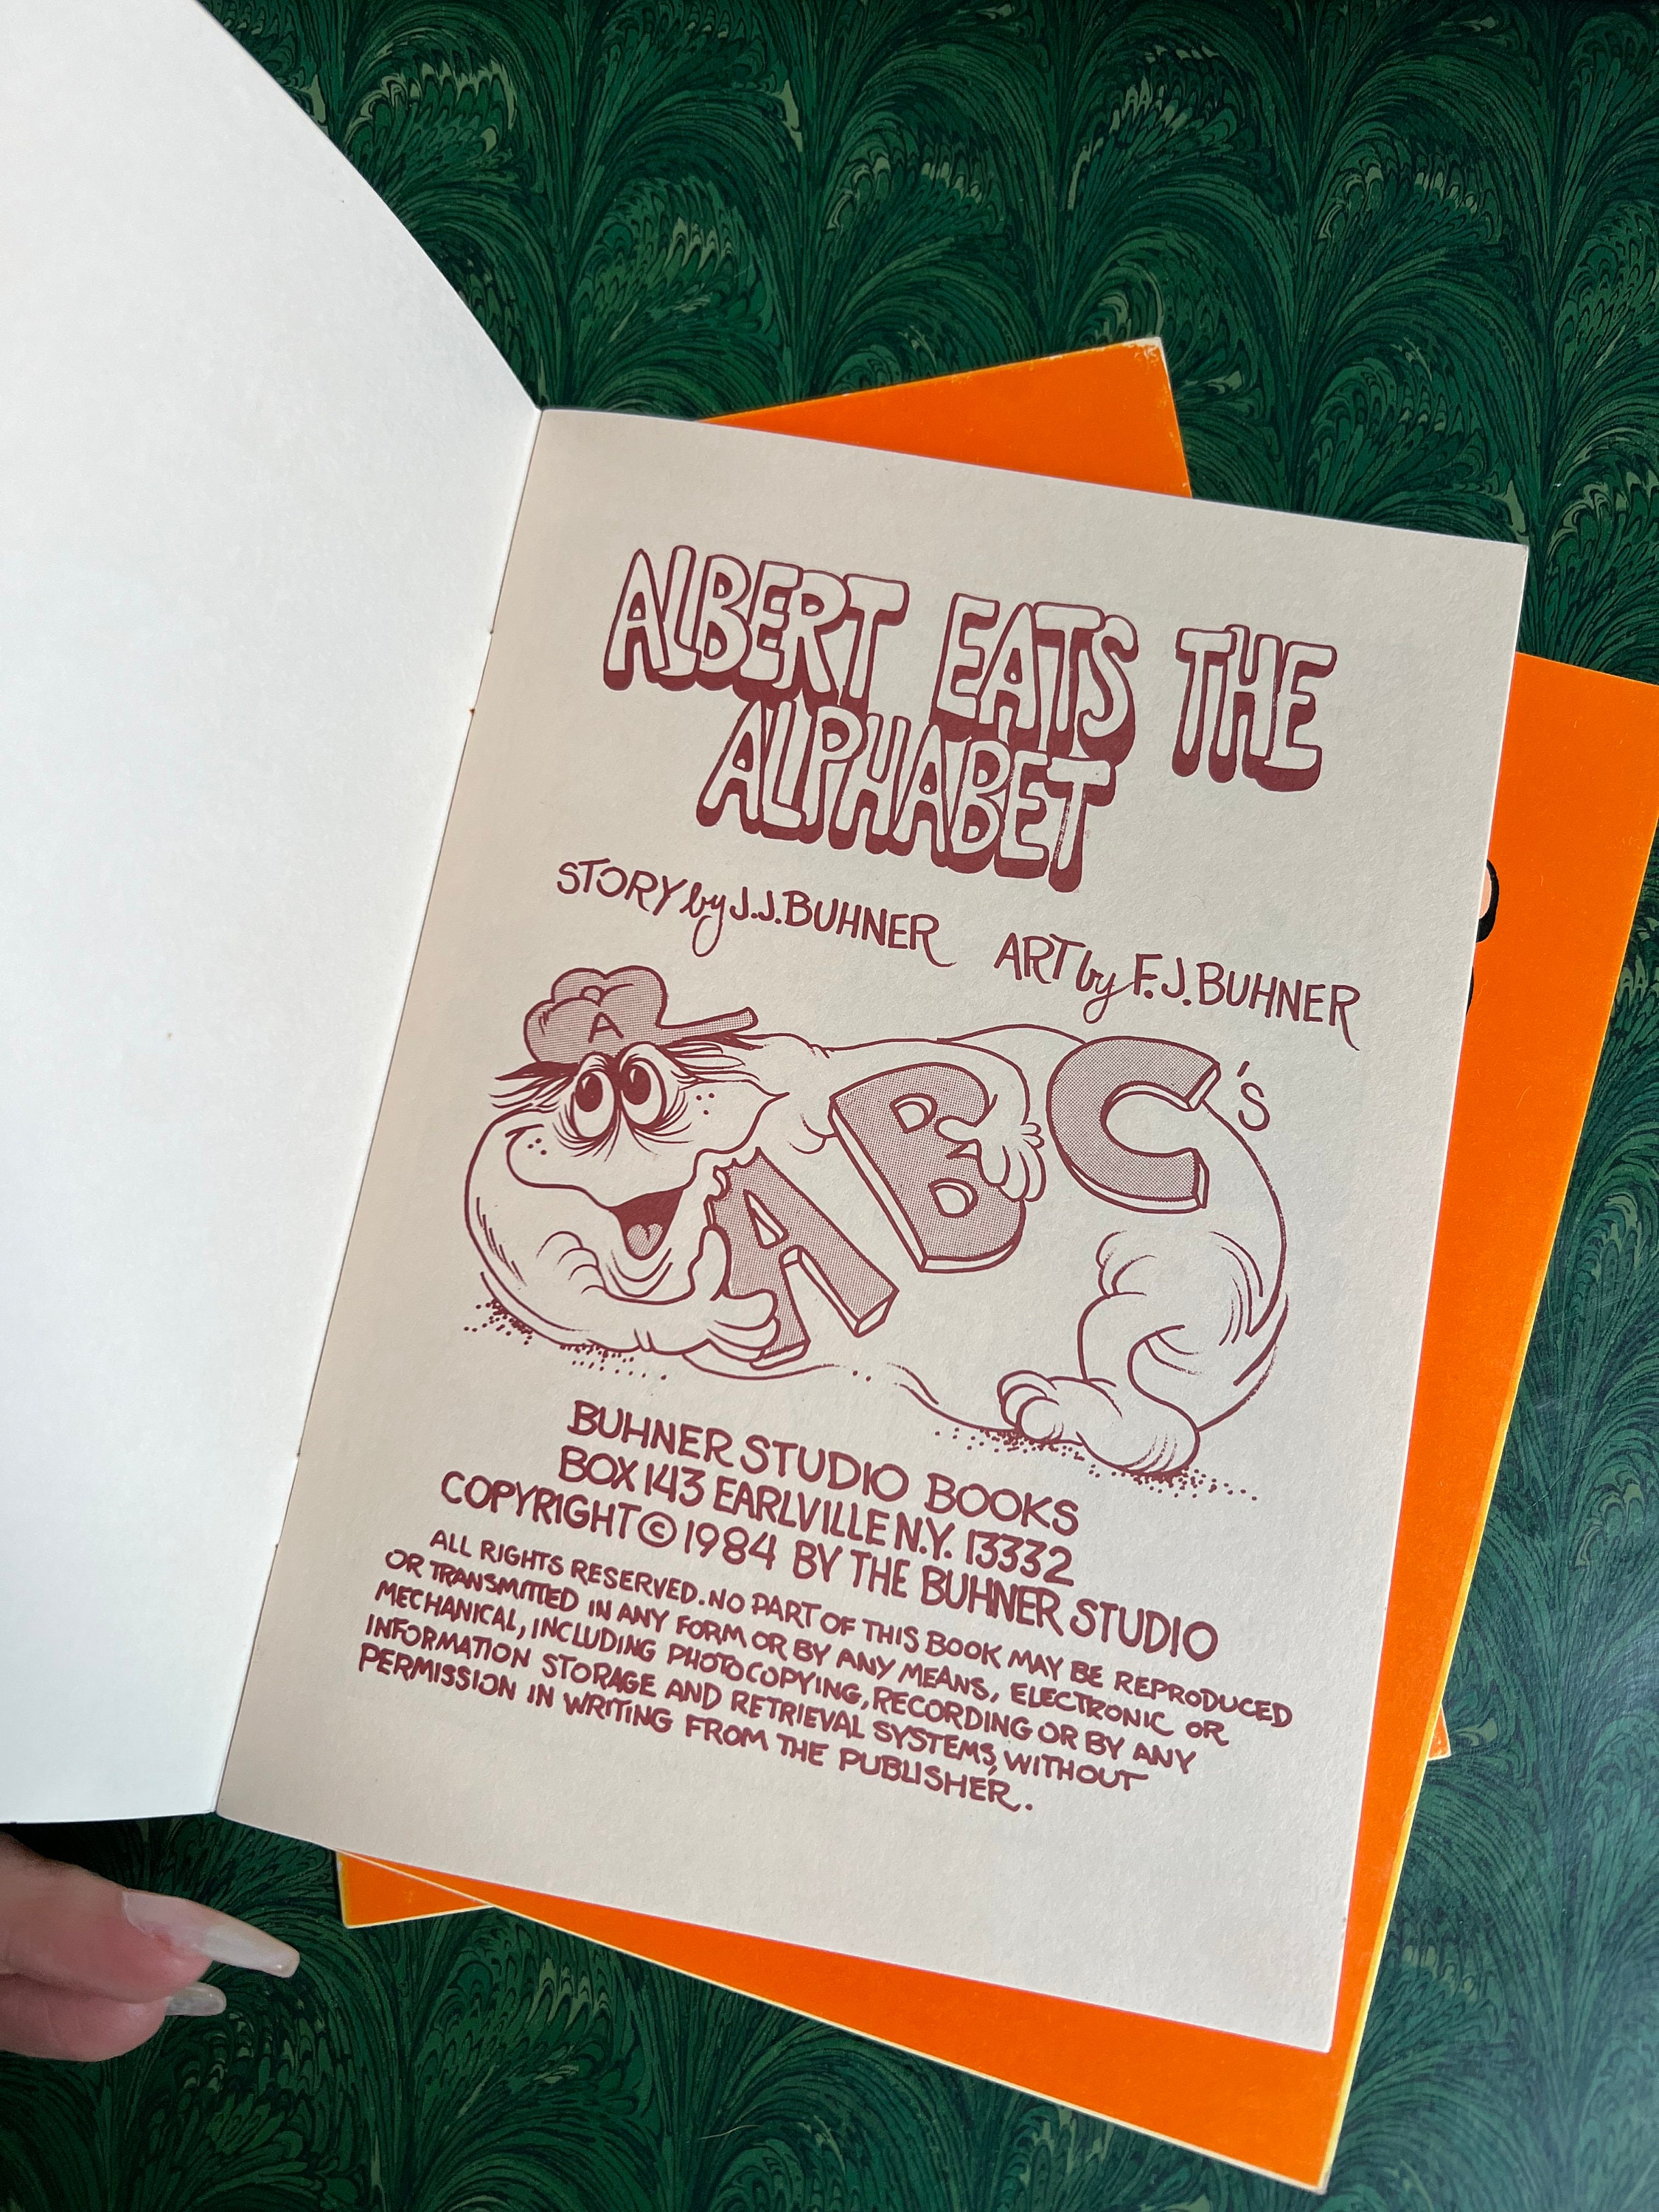 ALBERT EATS THE
ALPHABET
STORY by J.J. BUHNER ART by F.J. BUHNER
A
A B C 's
BUHNER STUDIO BOOKS
BOX 143 EARLVILLE N.Y. 13332
COPYRIGHT © 1984 BY THE BUHNER STUDIO
ALL RIGHTS RESERVED. NO PART OF THIS BOOK MAY BE REPRODUCED
OR TRANSMITTED IN ANY FORM OR BY ANY MEANS, ELECTRONIC OR
MECHANICAL, INCLUDING PHOTOCOPYING, RECORDING OR BY ANY
INFORMATION STORAGE AND RETRIEVAL SYSTEMS, WITHOUT
PERMISSION IN WRITING FROM THE PUBLISHER.